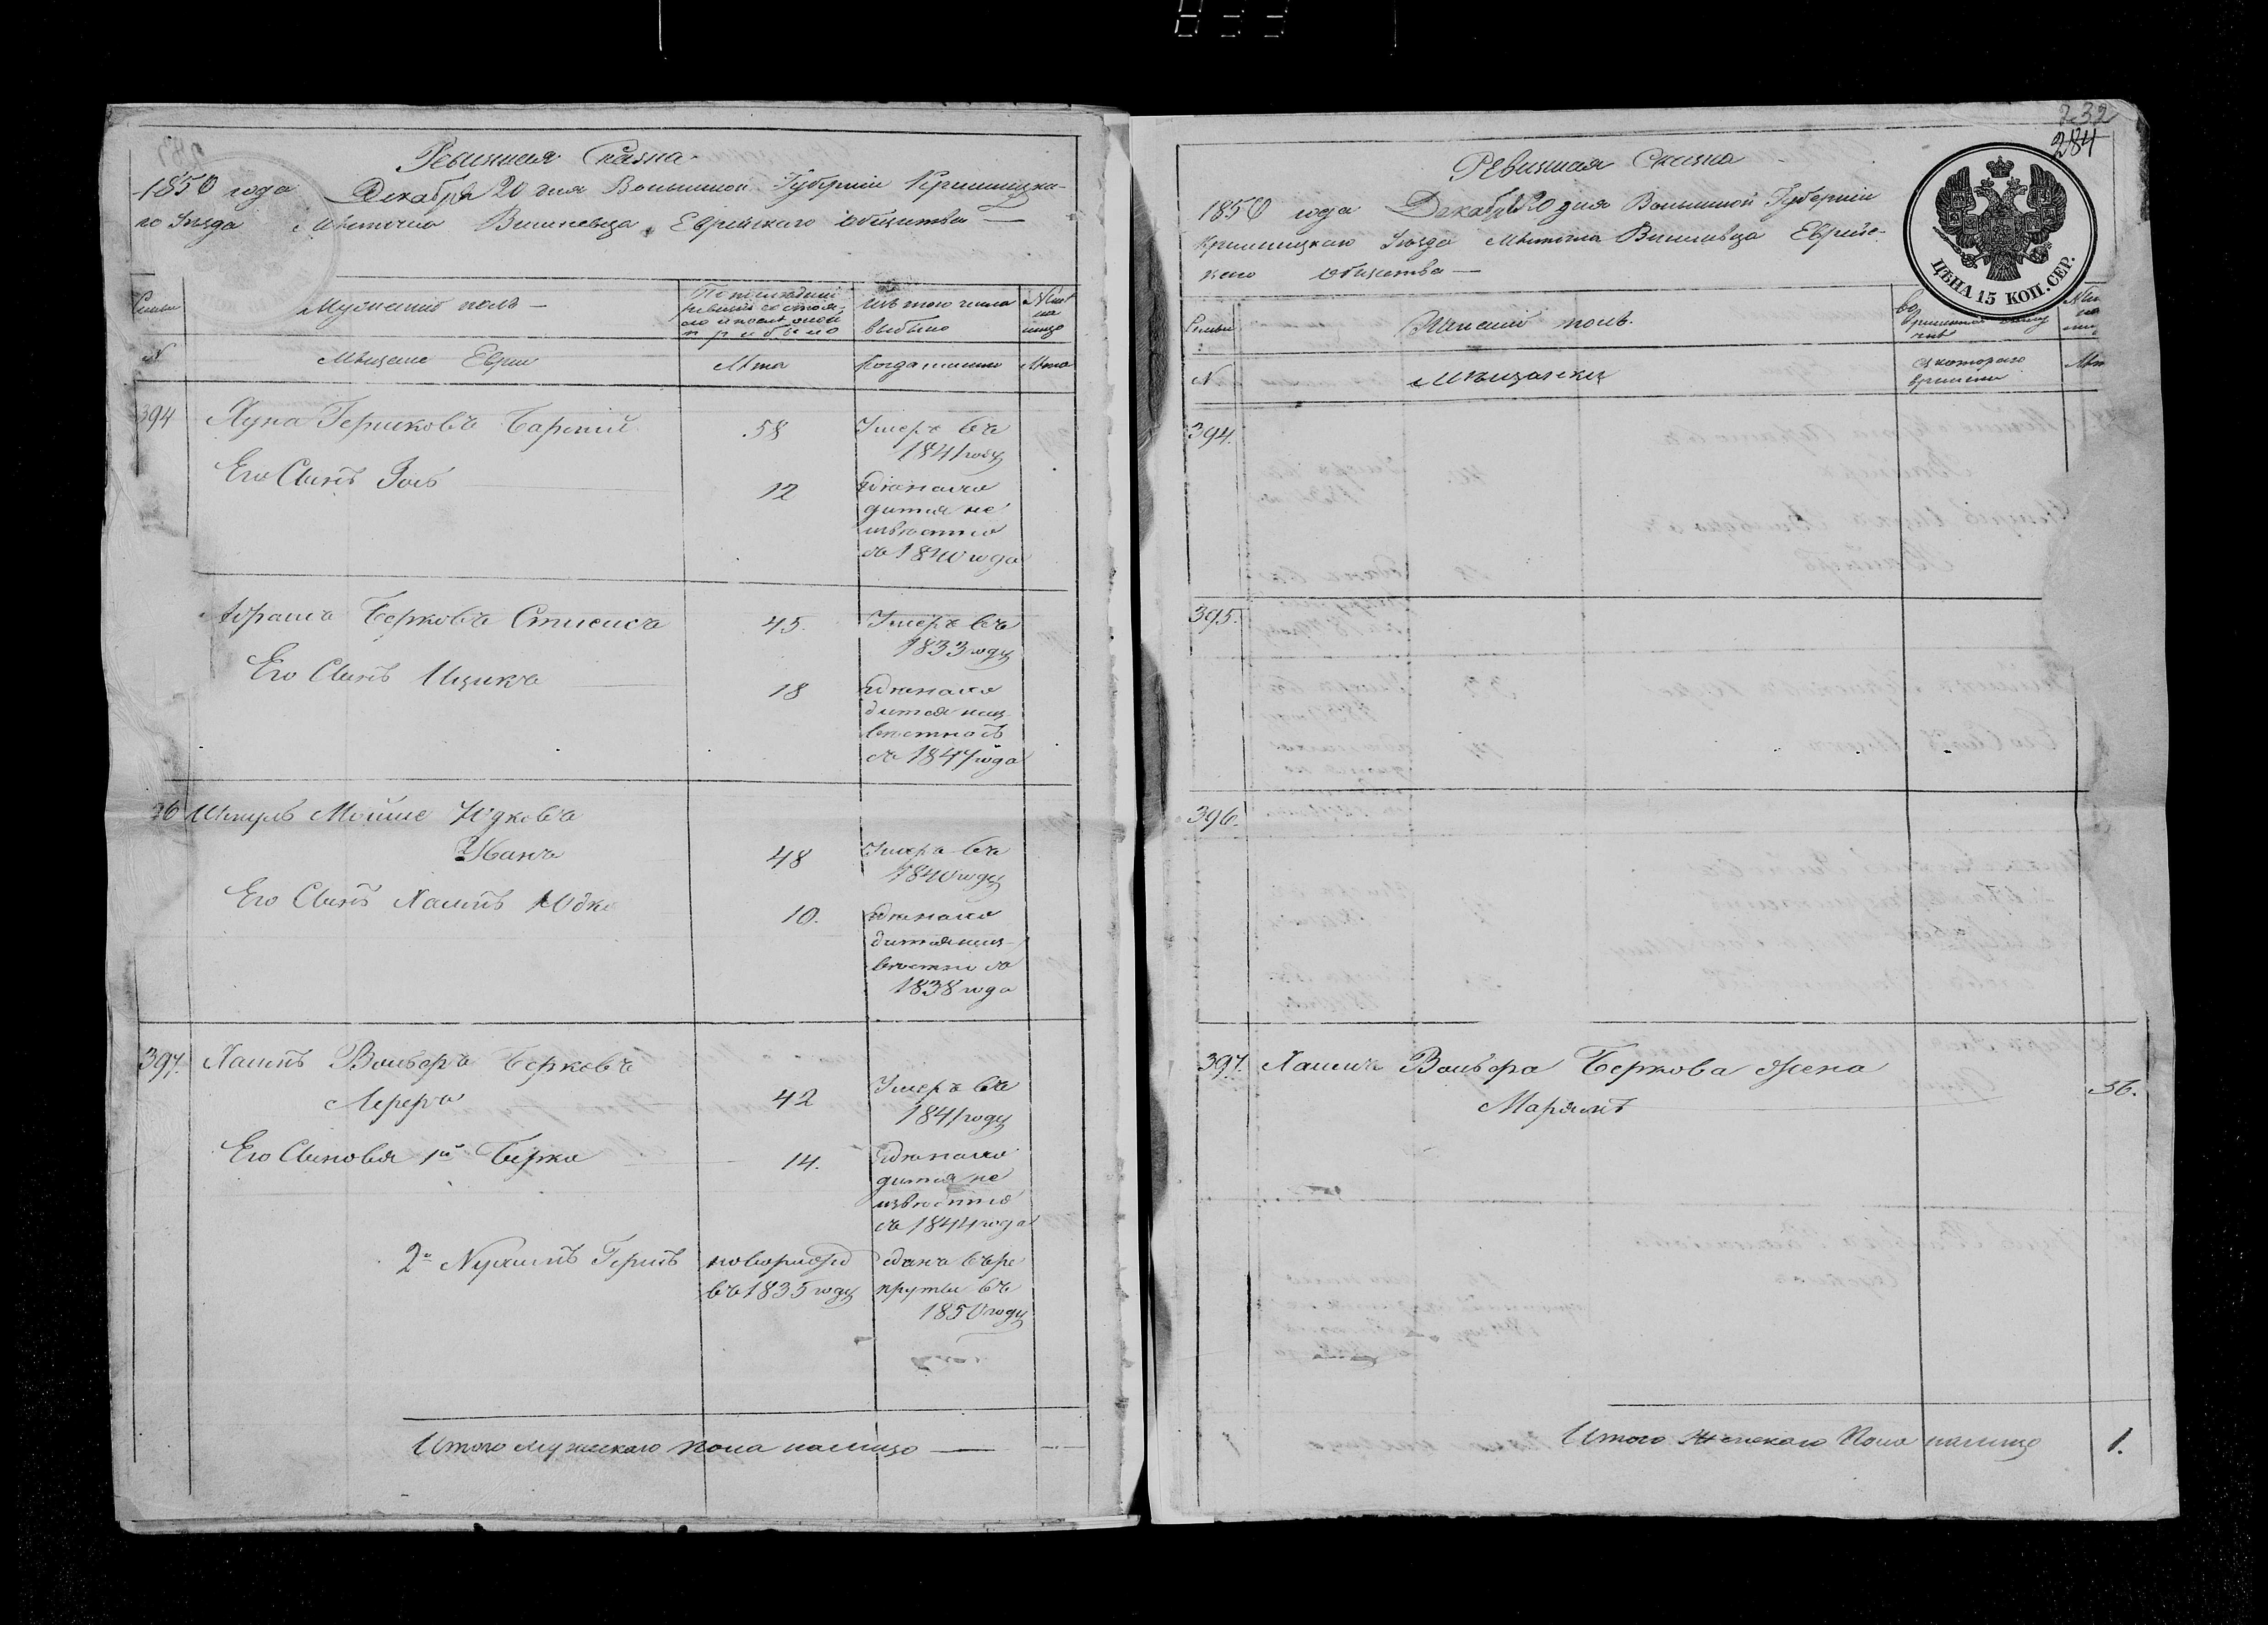 Ревизская Сказка
1850 года Декабря 20 дня Волынской Губернии Кременецка-
го Уезда Местечка Вишневца Еврейского Общества —
Семьи
Мужеский полъ —
По последней
ревизии состоя
ло и после оной
прибыло
Изъ того числа
выбыло
Ныне
на
лицо
№
Мещане Евреи
Лета
Когда именно
Лета
394
Хуна Гершковъ Барский
58
Умеръ въ
1841 году
Его Сынъ Іось
12
Где нахо
дится не
известно
съ 1840 года
Абрамъ Берковъ
45.
Умеръ въ
1833 году
Его Сынъ Ицикъ
18
Где нахо
дится неиз
вестно
съ 1847 года
96
Шмуль Мойше Юдковъ
48
Умеръ въ
1840 году
Его Сынъ Хаимъ Юдко
10.
Где нахо
дится неиз-
вестно съ
1838 года
397.
Хаимъ Вольфъ Берковъ
Лереръ
42
Умеръ въ
1841 году
Его Сыновья 1й Берко
14.
Где нахо
дится не
известно
съ 1844 года
2й Нухимъ Гершъ
новорожд
въ 1835 году
Сданъ въ ре
круты въ
1850 году
Итого мужескаго пола налицо —
232
284
ЦѢНА 15 КОП. СЕР.
Ревизская Сказка
1850 года Декабря 20 дня Волынской Губернии
Кременецкаго Уезда Местечка Вишневца Еврейс-
каго Общества —
Семьи
Женский полъ.
Во
временной отлуч
ке
№
Мещанки
Съ котораго
времени
394.
395.
396.
397.
Хаима Вольфа Беркова Жена
Марьямъ
36.
Итого Женскаго Пола налицо
1.